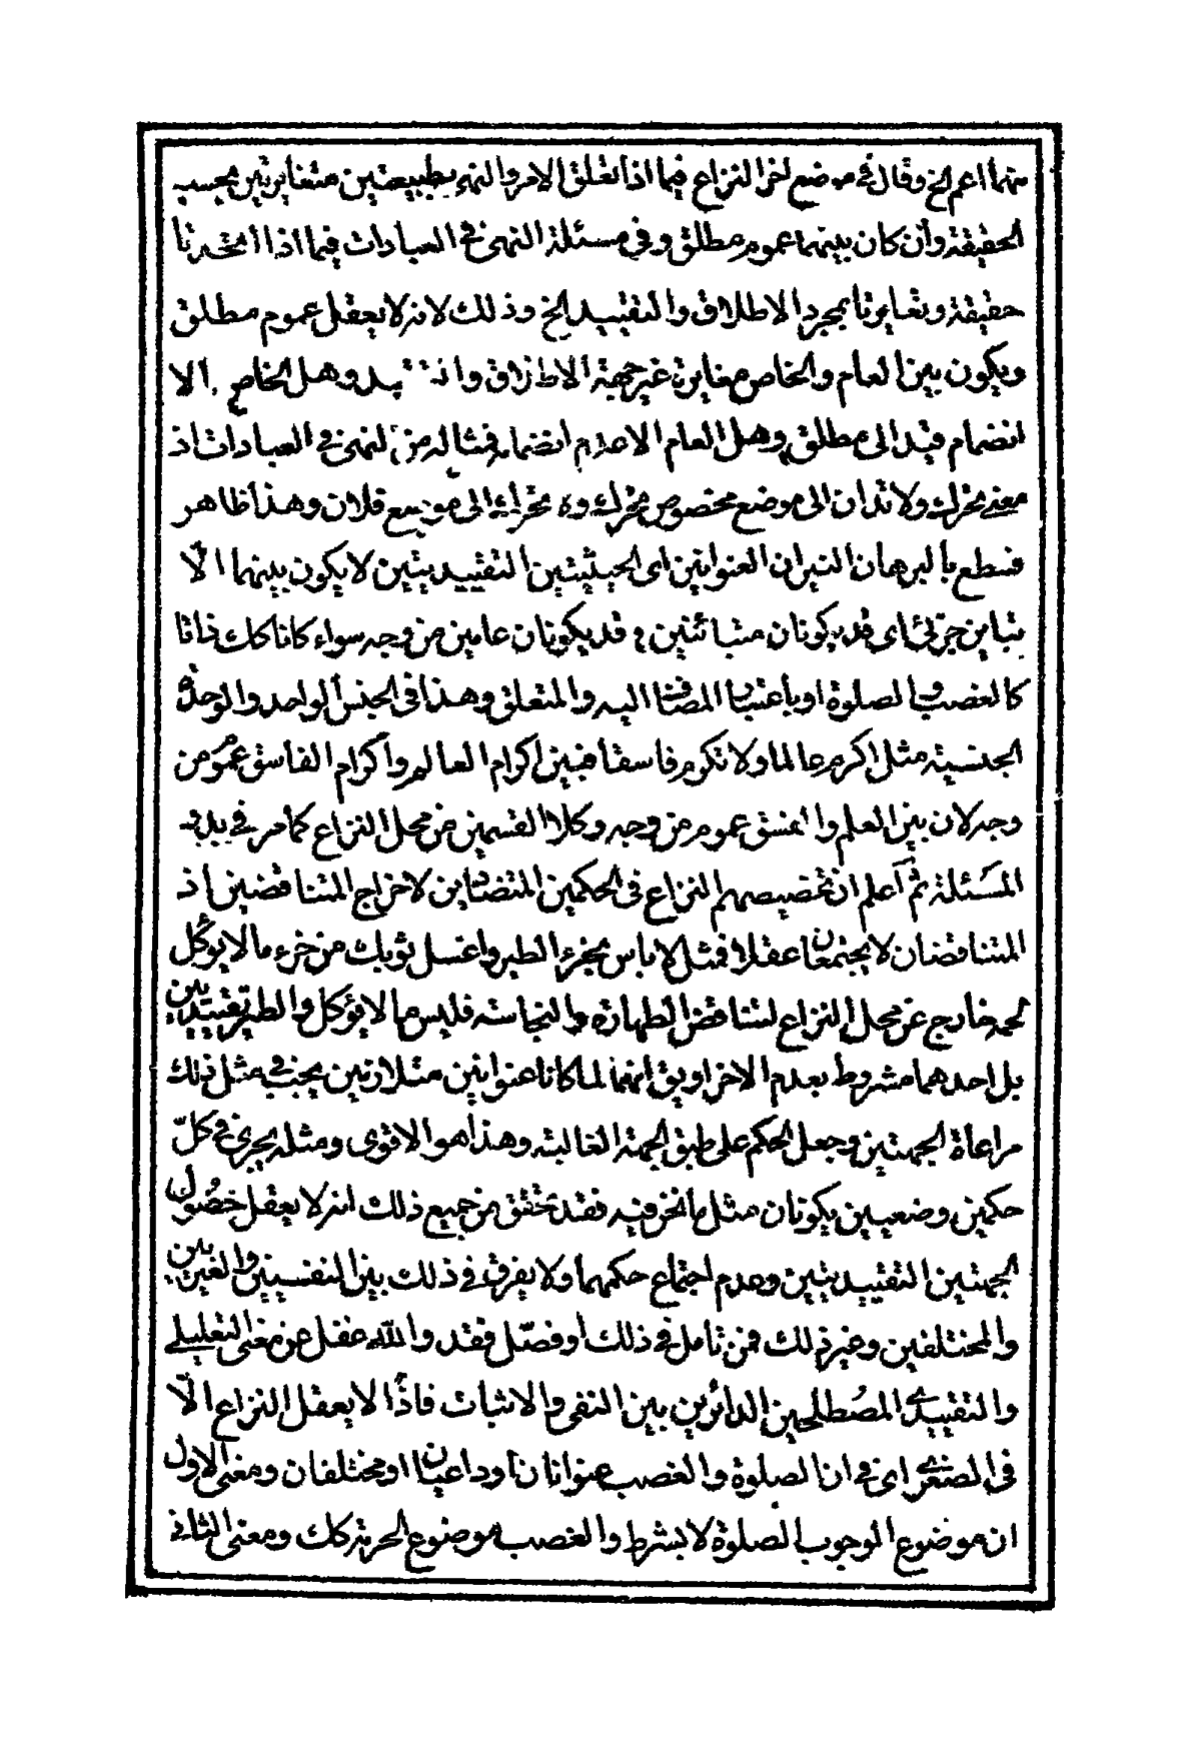 منهما اعم الخ وقال فى موضع اخر النزاع فيما اذا تعلق الامر والنهى بطبيعتين متغايرتين بحسب
الحقيقة وان كان بينهما عموم مطلق وفى مسئلة النهى فى العبادات فيما اذا اتحدتا
حقيقة وتغايرتا بمجرد الاطلاق والتقييد الخ وذلك لانه لا يعقل عموم مطلق
ويكون بين العام والخاص مغايرة غير جهة الاطلاق وهل الخاص الا
انضمام قيد الى مطلق وهل العام الا عدم انضمامه فمثاله من النهى فى العبادات اذ
معنى تحرك ولا تدان الى موضع مخصوص تحرك الى موضع فلان وهذا ظاهر
فسطع بالبرهان النير ان العنوانين اى الحيثيتين التقييديتين لا يكون بينهما الّا
تباين جزئى اى قد يكونان متبائنين و قد يكونان عامين من وجه سواء كانا كك ذاتا
كالغصب والصلوة او باعتبار المضاف اليه والمتعلق وهذا فى الجنس الواحد والوحدة
الجنسية مثل اكرم عالما ولا تكرم فاسقا فبين اكرام العالم واكرام الفاسق عموم من
وجه لان بين العلم والفسق عموم من وجه وكلا القسمين من محل النزاع كما مر فى بدو
المسئلة ثم اعلم ان تخصيصهم النزاع فى الحكمين المتضادين لاخراج المتناقضين اذ
المتناقضان لا يجتمعان عقلا فمثل لا باس بخرء الطير واغسل ثوبك من خرء ما لا يوكل
لحمه خارج عن محل النزاع لتناقض الطهارة والنجاسة فليس ما لا يؤكل والطير تقييديين
بل احدهما مشروط بعدم الاخر او يق انهما لما كانا عنوانين متلازمين يجب فى مثل ذلك
مراعاة الجهتين وجعل الحكم على طبق الجهة الغالبة وهذا هو الاقوى ومثله يجرى فى كلّ
حكمين وضعيين يكونان مثل ما نحن فيه فقد تحقق من جميع ذلك انه لا يعقل حصول
الجهتين التقييديتين وعدم اجتماع حكمهما ولا يفرق فى ذلك بين النفسيين والغيريين
والمختلفين وغير ذلك فمن تامل فى ذلك او فصّل فقد والله غفل عن معنى التعليلى
والتقييدى المصطلحين الدائرين بين النفى والاثبات فاذًا لا يعقل النزاع الّا
فى الصغرى اى فى ان الصلوة والغصب عنوانان او داعيان او مختلفان ومعنى الاول
ان موضوع الوجوب الصلوة لا بشرط والغصب موضوع الحرمة كك ومعنى الثانى